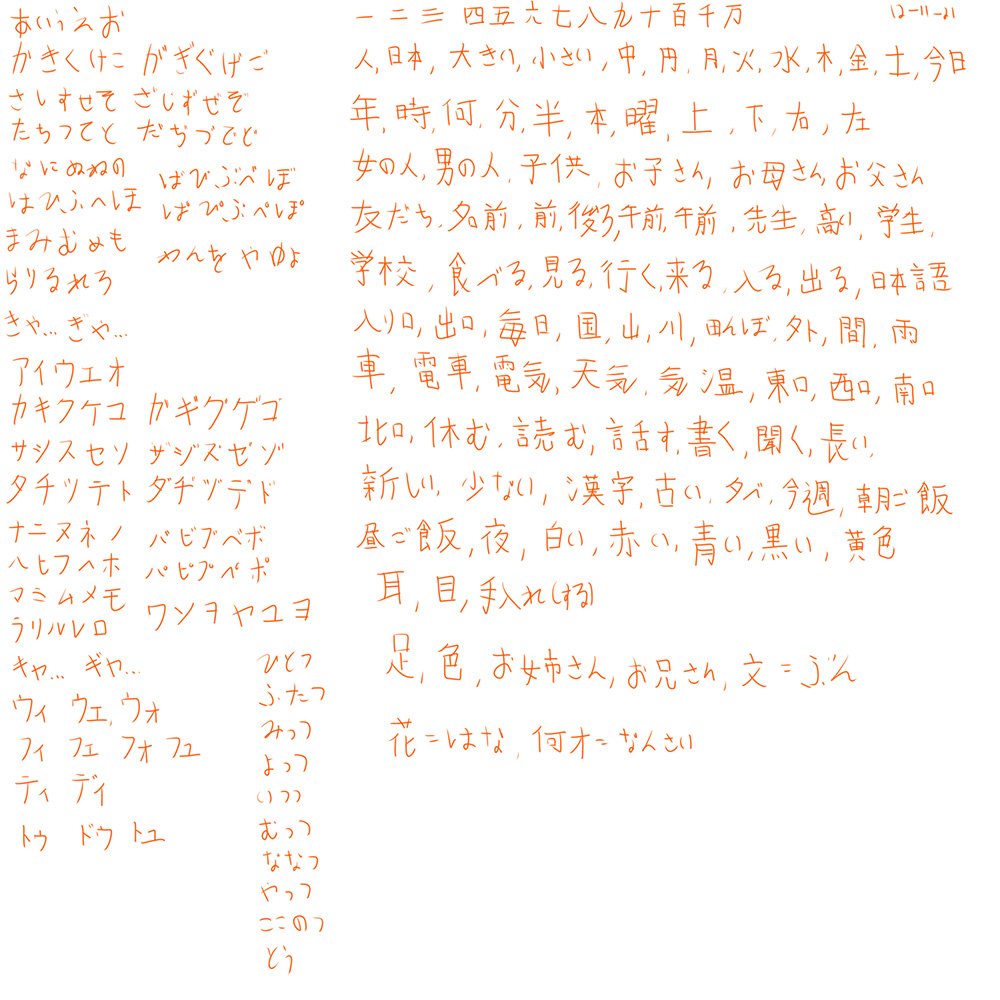 あいうえお
かきくけこ がぎぐげご
さしすせそ ざじずぜぞ
たちつてと だぢづでど
なにぬねの
はひふへほ ばびぶべぼ
ぱぴぷぺぽ
まみむめも
わんを や ゆよ
らりるれろ
きゃ... ぎゃ...
アイウエオ
カキクケコ ガギグゲゴ
サシスセソ ザジズゼゾ
タチツテト ダヂヅデド
ナニヌネノ
ハヒフヘホ バビブベボ
パピプペポ
マミムメモ
ラリルレロ ワンヲヤユヨ
キャ... ギャ...
ウィ ウェ, ウォ
フィ フェ フォ フュ
ティ ディ
トゥ ドウ トュ
ひとつ
ふたつ
みっつ
よっつ
いつつ
むっつ
ななつ
やっつ
ここのつ
とう
一二三四五六七八九十百千万
12-11-21
人, 日本, 大きい, 小さい, 中, 円, 月, 火, 水, 木, 金, 土, 今日
年, 時, 何, 分, 半, 本, 曜, 上, 下, 右, 左
女の人, 男の人, 子供, お子さん, お母さん, お父さん
友だち, 名前, 前, 後ろ, 午前, 午前, 先生, 高い, 学生,
学校, 食べる, 見る, 行く, 来る, 入る, 出る, 日本語
入り口, 出口, 毎日, 国, 山, 川, 田んぼ, 外, 間, 雨
車, 電車, 電気, 天気, 気温, 東口, 西口, 南口
北口, 休む, 読む, 話す, 書く, 聞く, 長い,
新しい, 少ない, 漢字, 古い, 夕べ, 今週, 朝ご飯
昼ご飯, 夜, 白い, 赤い, 青い, 黒い, 黄色
耳, 目, 手入れ(する)
足, 色, お姉さん, お兄さん, 文=ぶん
花=はな, 何才=なんさい